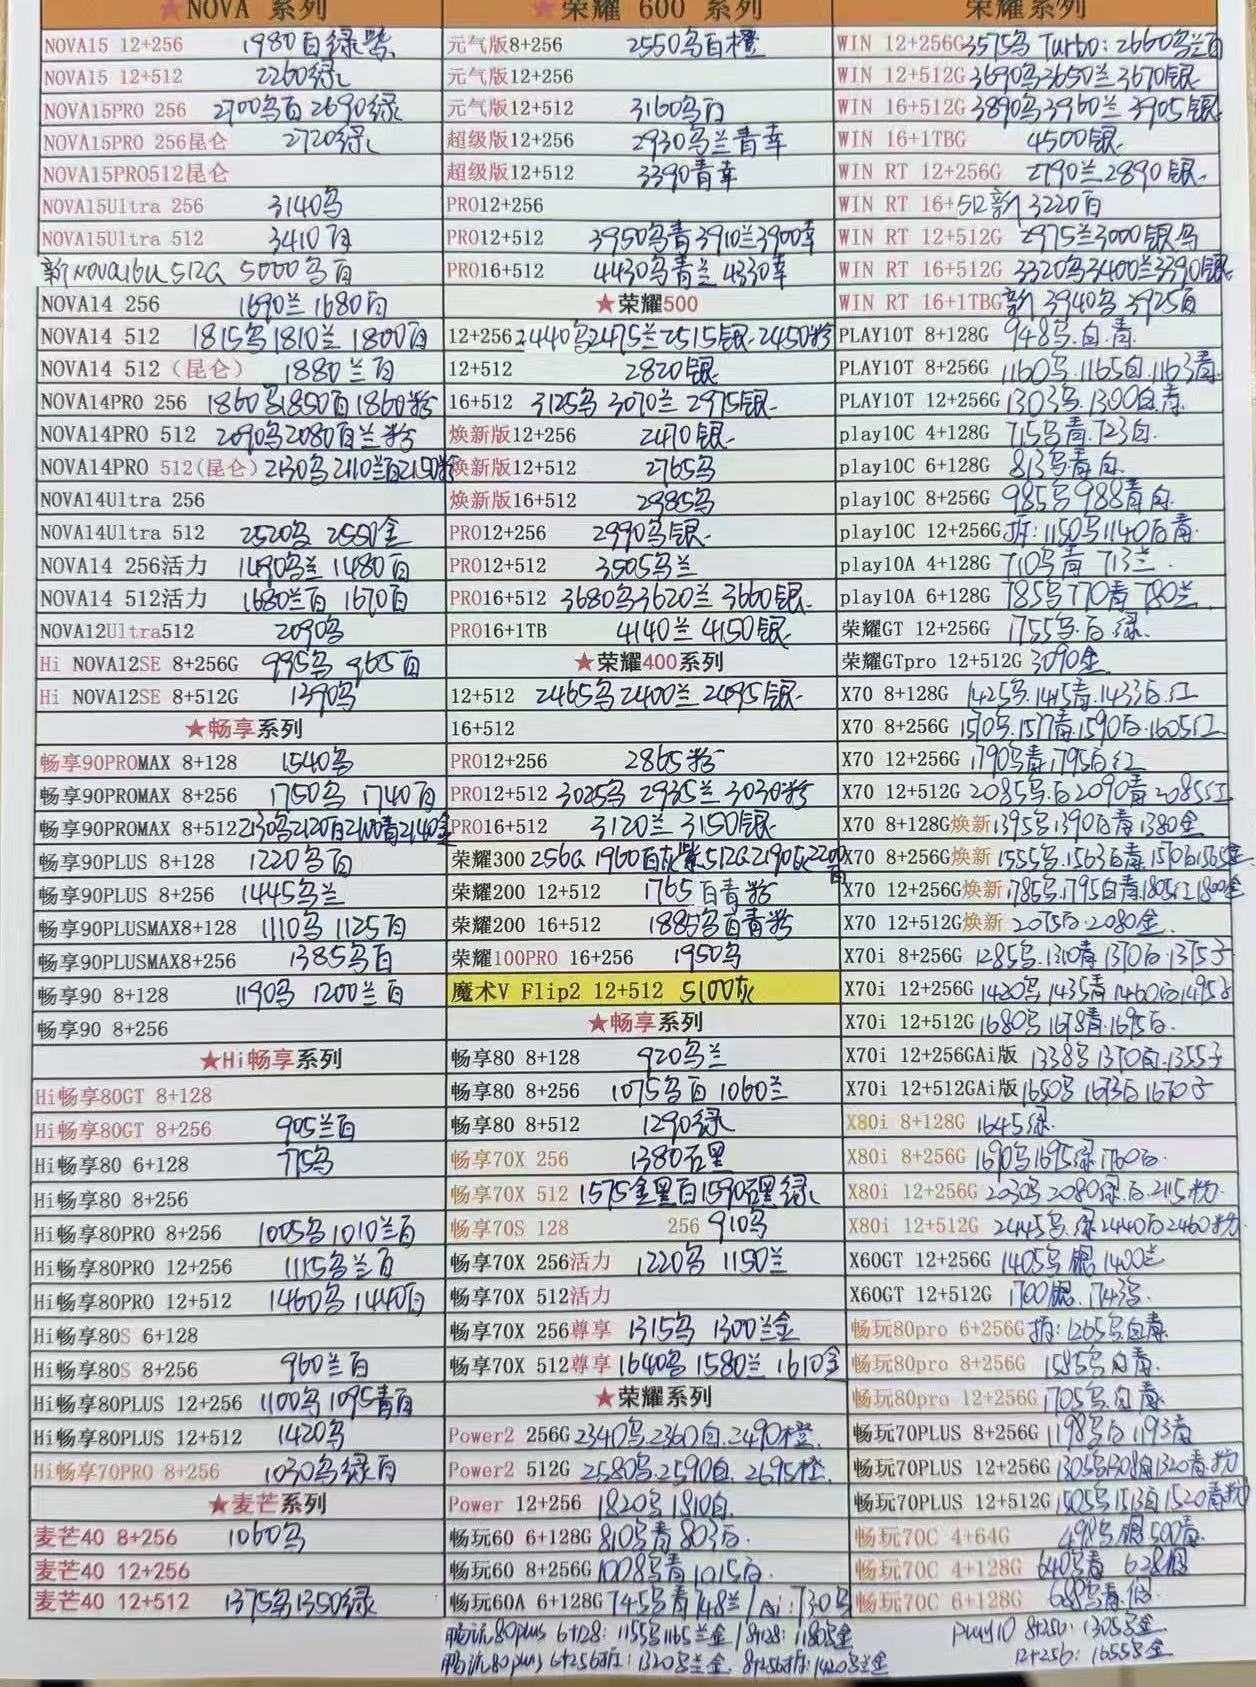 ★NOVA 系列
NOVA15 12+256 1980白绿紫
NOVA15 12+512 2260绿
NOVA15PRO 256 2700乌白2690绿
NOVA15PRO 256昆仑 2720绿
NOVA15PRO512昆仑
NOVA15Ultra 256 3140乌
NOVA15Ultra 512 3410白
新NOVA16U 512G 5000乌白
NOVA14 256 1690兰 1680白
NOVA14 512 1815乌1810兰 1800白
NOVA14 512（昆仑） 1880兰白
NOVA14PRO 256 1860乌1850白1860粉
NOVA14PRO 512 2090乌2080白兰粉
NOVA14PRO 512(昆仑) 2130乌2110兰白2150粉
NOVA14Ultra 256
NOVA14Ultra 512 2520乌 2550金
NOVA14 256活力 1490乌兰 1480白
NOVA14 512活力 1680兰白 1670白
NOVA12Ultra512 2090乌
Hi NOVA12SE 8+256G 995乌 965白
Hi NOVA12SE 8+512G 1390乌
★畅享系列
畅享90PROMAX 8+128 1540乌
畅享90PROMAX 8+256 1750乌 1740白
畅享90PROMAX 8+512 2130乌2120白2100青2140金
畅享90PLUS 8+128 1220乌白
畅享90PLUS 8+256 1445乌兰
畅享90PLUSMAX8+128 1110乌 1125白
畅享90PLUSMAX8+256 1385乌白
畅享90 8+128 1190乌 1200兰白
畅享90 8+256
★Hi畅享系列
Hi畅享80GT 8+128
Hi畅享80GT 8+256 905兰白
Hi畅享80 6+128 775乌
Hi畅享80 8+256
Hi畅享80PRO 8+256 1005乌1010兰白
Hi畅享80PRO 12+256 1115乌兰白
Hi畅享80PRO 12+512 1460乌1440白
Hi畅享80S 6+128
Hi畅享80S 8+256 960兰白
Hi畅享80PLUS 12+256 1100乌1095青白
Hi畅享80PLUS 12+512 1420乌
Hi畅享70PRO 8+256 1030乌绿白
★麦芒系列
麦芒40 8+256 1060乌
麦芒40 12+256
麦芒40 12+512 1375乌1350绿
★荣耀 600 系列
元气版8+256 2550乌白橙
元气版12+256
元气版12+512 3160乌白
超级版12+256 2930乌兰青幸
超级版12+512 3390青幸
PRO12+256
PRO12+512 3950乌青3910兰3900幸
PRO16+512 4430乌青兰4330幸
★荣耀500
12+256 2440乌2475兰2515银2450粉
12+512 2820银
16+512 3125乌 3070兰 2975银
焕新版12+256 2470银
焕新版12+512 2765乌
焕新版16+512 2985乌
PRO12+256 2990乌银
PRO12+512 3505乌兰
PRO16+512 3680乌3620兰 3660银
PRO16+1TB 4140兰 4150银
★荣耀400系列
12+512 2465乌2400兰2495银
16+512
PRO12+256 2865粉
PRO12+512 3025乌 2935兰 3030粉
PRO16+512 3120兰 3150银
荣耀300 256G 1960白灰紫512G2190灰2200白
荣耀200 12+512 1765白青粉
荣耀200 16+512 1885乌白青粉
荣耀100PRO 16+256 1950乌
魔术V Flip2 12+512 5100灰
★畅享系列
畅享80 8+128 920乌兰
畅享80 8+256 1075乌白1060兰
畅享80 8+512 1290绿
畅享70X 256 1380石黑
畅享70X 512 1575金黑白1590石黑绿
畅享70S 128 256 910乌
畅享70X 256活力 1220乌 1150兰
畅享70X 512活力
畅享70X 256尊享 1315乌 1300兰金
畅享70X 512尊享 1640乌 1580兰 1610金
★荣耀系列
Power2 256G 2340乌.2360白.2490橙.
Power2 512G 2580乌.2590白.2695橙.
Power 12+256 1820乌1810白.
畅玩60 6+128G 810乌青803白.
畅玩60 8+256G 1008乌青1015白.
畅玩60A 6+128G 745乌青748兰/Ai:730乌
荣耀系列
WIN 12+256G 3575乌 Turbo:2660乌兰白
WIN 12+512G 3690乌3650兰 3670银.
WIN 16+512G 3890乌3960兰 3905银
WIN 16+1TBG 4500银.
WIN RT 12+256G 2790兰2890银.
WIN RT 16+512新 3220白
WIN RT 12+512G 2975兰3000银乌
WIN RT 16+512G 3320乌3400兰3390银
WIN RT 16+1TBG新 3940乌 3925白
PLAY10T 8+128G 948乌.白.青.
PLAY10T 8+256G 1160乌.1165白.1163青.
PLAY10T 12+256G 1303乌.1300白青.
play10C 4+128G 715乌青.723白.
play10C 6+128G 813乌青白.
play10C 8+256G 985乌988青白.
play10C 12+256G 拆:1150乌1140白青.
play10A 4+128G 710乌青 713兰.
play10A 6+128G 785乌770青780兰
荣耀GT 12+256G 1755乌.白.绿.
荣耀GTpro 12+512G 3090金
X70 8+128G 1425乌.1415青.1433白.红
X70 8+256G 1570乌.1577青.1590白.1605红.
X70 12+256G 1790乌青.1795白红
X70 12+512G 2085乌.白2090青2085红
X70 8+128G焕新1395乌.1390白青.1380金
X70 8+256G焕新 1555乌.1563白青.1570白1565金
X70 12+256G焕新1785乌.1795白青1805红1800金
X70 12+512G焕新 2075白.2080金.
X70i 8+256G 1285乌.1310青1370白.1375子
X70i 12+256G 1420乌1435青1460白1495子
X70i 12+512G 1680乌1678青.1695白.
X70i 12+256GAi版 1338乌1370白.1355子
X70i 12+512GAi版 1650乌 1673白1670子
X80i 8+128G 1645绿.
X80i 8+256G 1690乌1695绿1760白.
X80i 12+256G 2030乌2080绿.白.2115粉.
X80i 12+512G 2445乌.绿2440白2460粉
X60GT 12+256G 1405乌银1400兰
X60GT 12+512G 1700银.1743乌.
畅玩80pro 6+256G 拆:1265乌白青.
畅玩80pro 8+256G 1585乌白青.
畅玩80pro 12+256G 1705乌.白青.
畅玩70PLUS 8+256G 1198乌白1193青
畅玩70PLUS 12+256G 1305乌1308白1320青.粉
畅玩70PLUS 12+512G 1505乌1513白1520青粉
畅玩70C 4+64G 498乌银500青.
畅玩70C 4+128G 640乌青 638银
畅玩70C 6+128G 688乌青.银.
畅玩80plus 6+128:1155乌1165兰金/8+128:1180乌金
畅玩80plus 6+256拆:1320乌兰金.8+256拆:1420乌兰金
play10 8+256:1305乌金
12+256:1655乌金